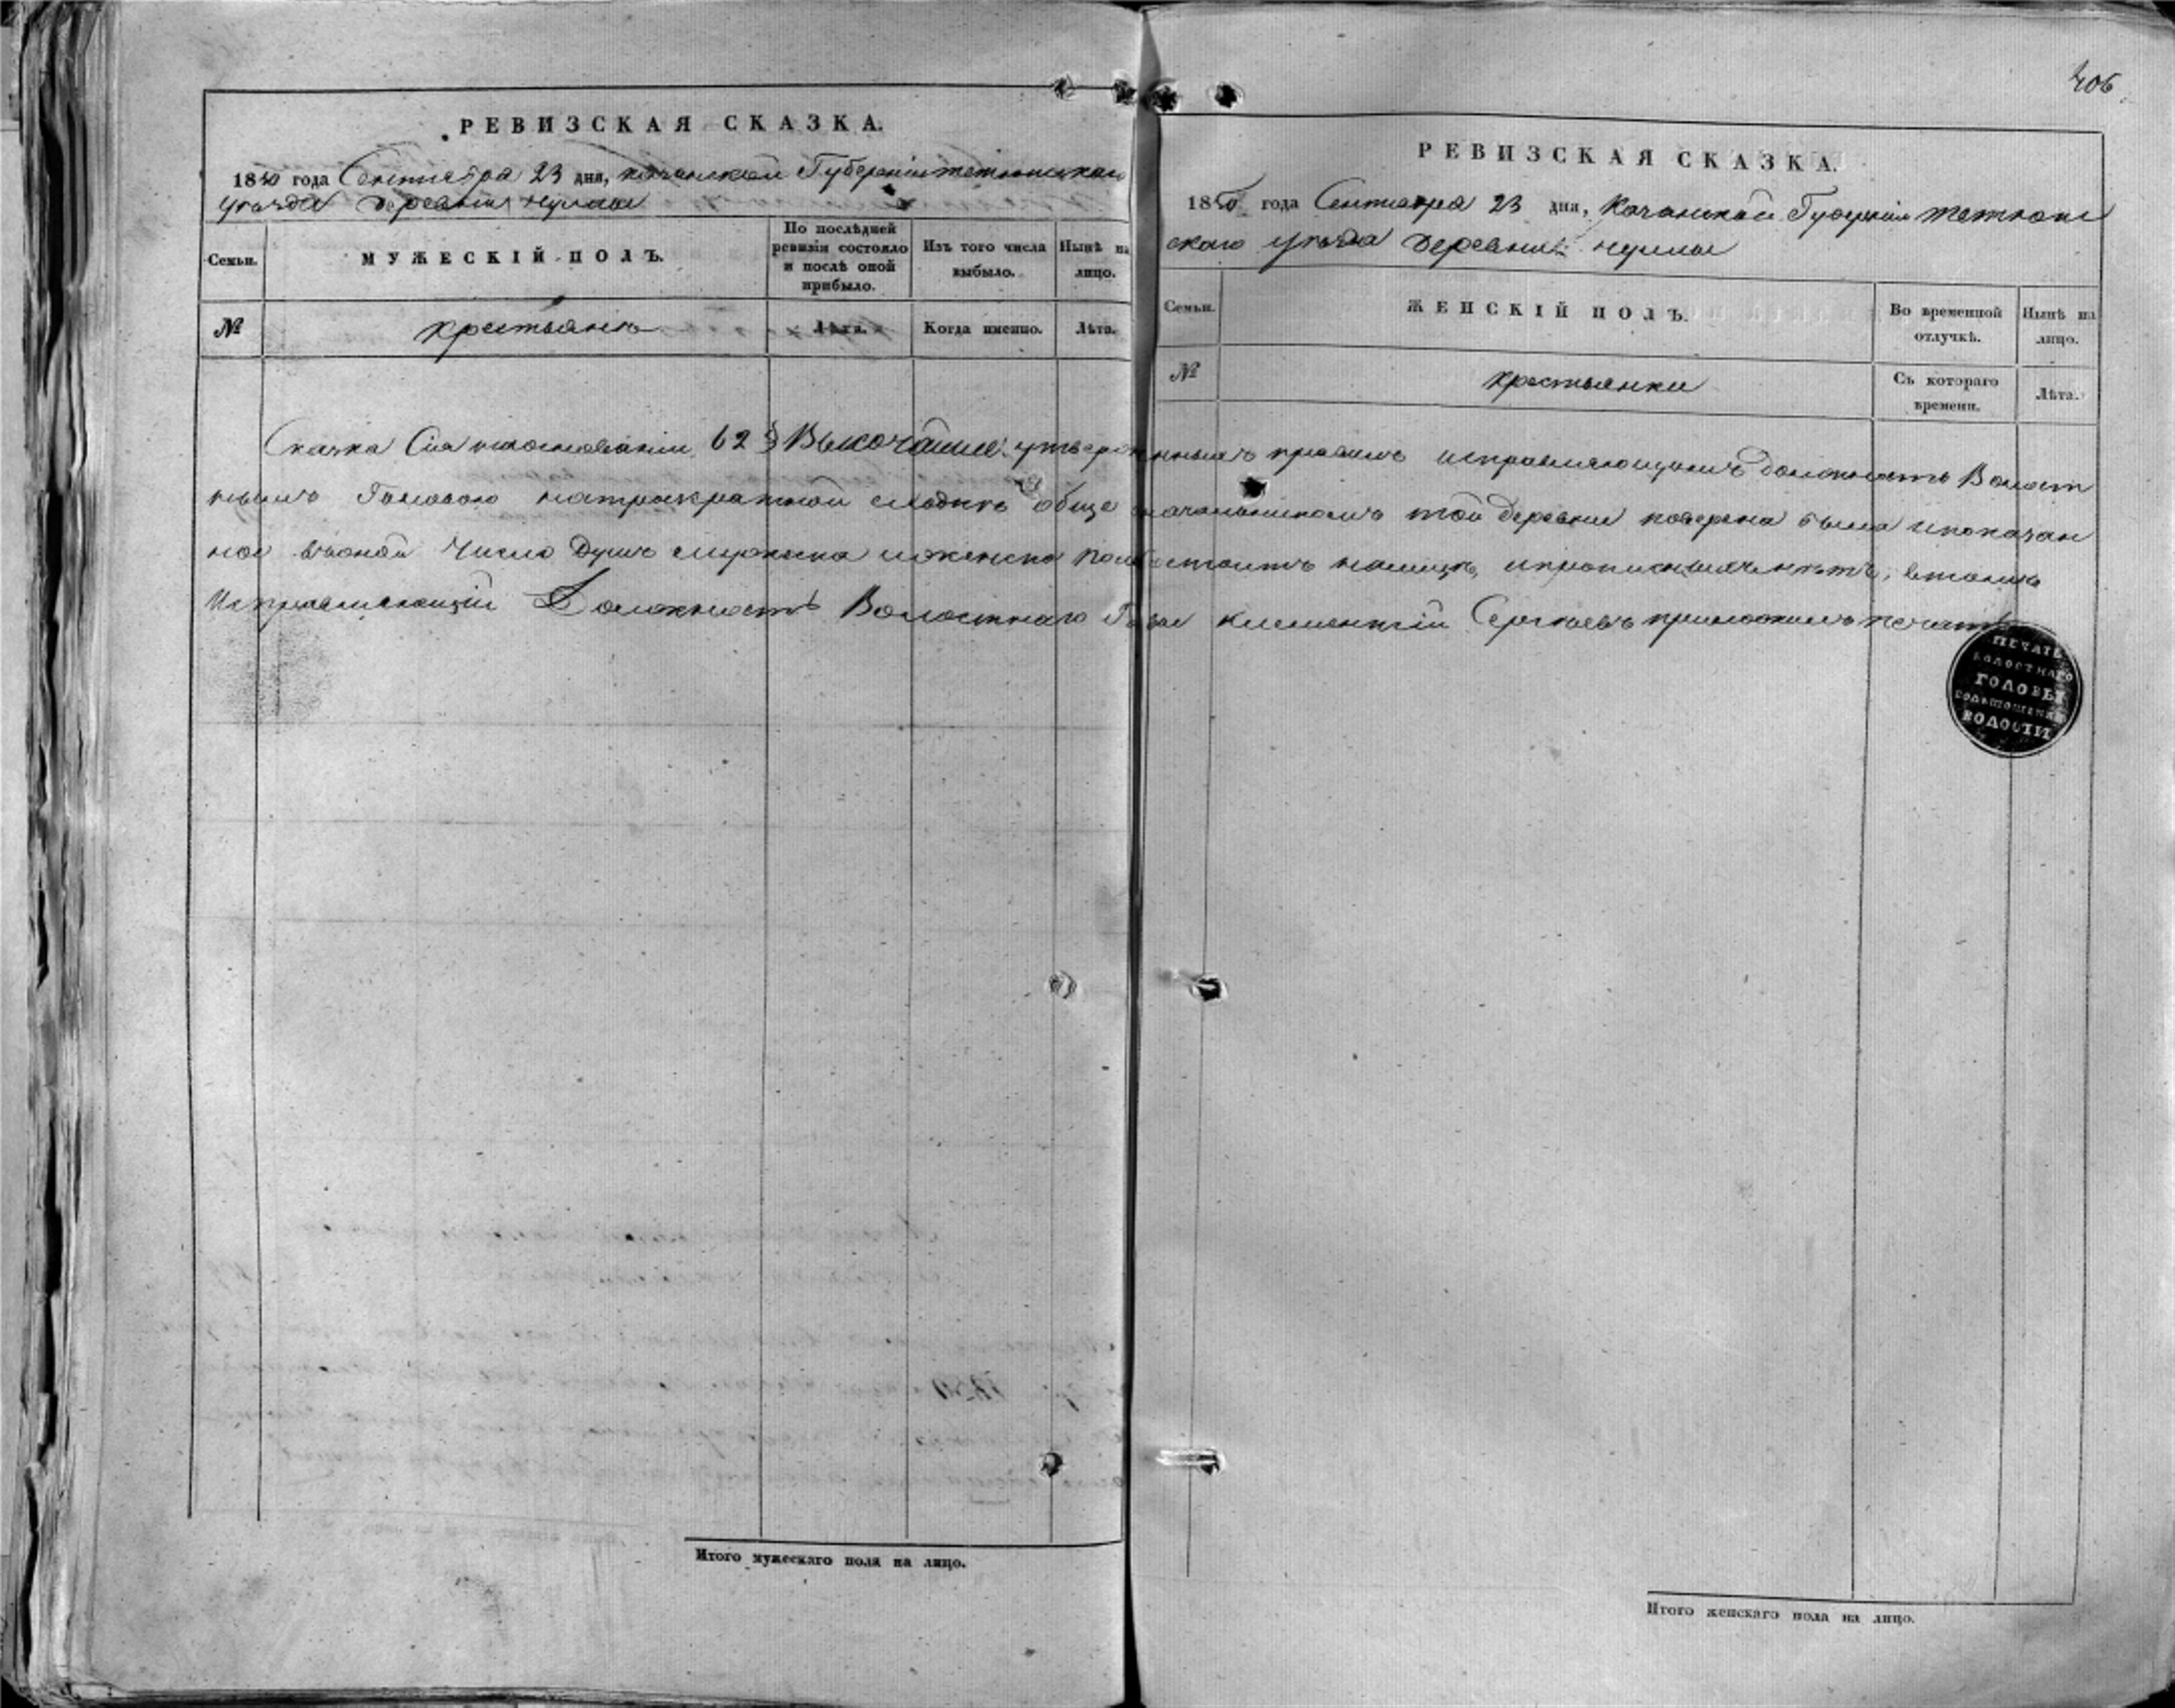 406
РЕВИЗСКАЯ СКАЗКА.
1850 года Сентября 23 дня, казанской Губернии тетюшскаго
уѣзда деревни
Семьи.
МУЖЕСКІЙ ПОЛЪ.
По послѣдней ревизіи состояло и послѣ оной прибыло.
Изъ того числа выбыло.
Нынѣ на лицо.
№
крестьянъ
Лѣта.
Когда именно.
Лѣта.
РЕВИЗСКАЯ СКАЗКА.
1850 года Сентября 23 дня, Казанской Губерніи тетюш
скаго уѣзда деревни
Семьи.
ЖЕНСКІЙ ПОЛЪ.
Во временной отлучкѣ.
Нынѣ на лицо.
№
крестьянки
Съ котораго времени.
Лѣта.
Сказка Сія наосновании 62 § Высочайше утвержденныхъ правилъ исправляющимъ должность Волост
нымъ Головою натрехкратной сходкѣ обще начальникомъ той деревни поверена была ипоказан
ное вѣоной Число Душъ мужеска иженска пола состоитъ налицо, ипрописныхъ нѣтъ,
Исправляющій Должность Волостнаго Головы Климентій Сергѣевъ приложилъ печать
ПЕЧАТЬ
ВОЛОСТНАГО
ГОЛОВЫ
ВОЛОСТИ
Итого мужескаго пола на лицо.
Итого женскаго пола на лицо.